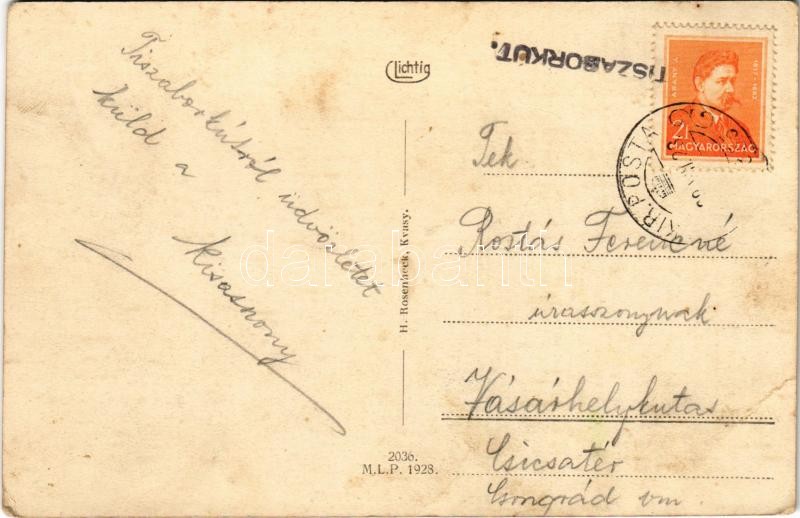 Tiszaborkútról üdvözletet
küld a
kisasszony
Lichtig
TISZABORKUT.
ARANY J.
1817-1882
2f
MAGYARORSZÁG
KIR. POSTA
Tek
Rostás Ferencné
úrasszonynak
Vásárhelykutas
Csicsatér
Csongrád vm.
H. Rosenbeck, Kvasy.
2036.
M.L.P. 1928.
darabanth